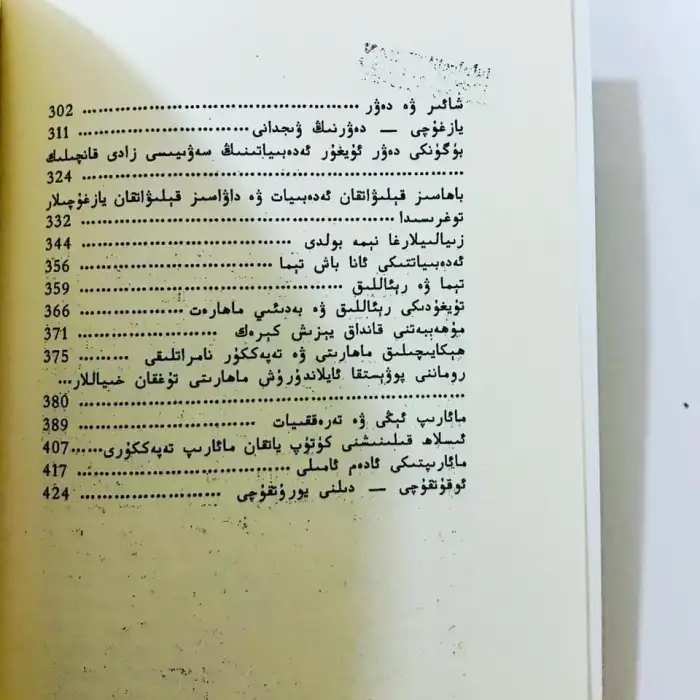 شائىر ۋە دەۋر ........................................ 302
يازغۇچى — دەۋرنىڭ ۋىجدانى ........................... 311
بۈگۈنكى دەۋر ئۇيغۇر ئەدەبىياتىنىڭ سەۋىيىسى زادى قانچىلىك
........................................................ 324
باھاسىز قېلىۋاتقان ئەدەبىيات ۋە داۋاسىز قېلىۋاتقان يازغۇچىلار
توغرىسىدا ............................................ 332
زىيالىيلارغا نېمە بولدى .............................. 344
ئەدەبىياتتىكى ئانا باش تېما ......................... 356
تېما ۋە رېئاللىق ...................................... 359
تۇيغۇدىكى رېئاللىق ۋە بەدىئىي ماھارەت ................ 366
مۇھەببەتنى قانداق يېزىش كېرەك ....................... 371
ھېكايىچىلىق ماھارىتى ۋە تەپەككۇر نامراتلىقى ......... 375
روماننى پوۋېستقا ئايلاندۇرۇش ماھارىتى تۇغقان خىياللار...
........................................................ 380
مائارىپ ئېڭى ۋە تەرەققىيات .......................... 389
ئىسلاھ قىلىنىشنى كۈتۈپ ياتقان مائارىپ تەپەككۇرى...... 407
مائارىپتىكى ئادەم ئامىلى ............................. 417
ئوقۇتقۇچى — دىلنى يورۇتقۇچى ........................ 424